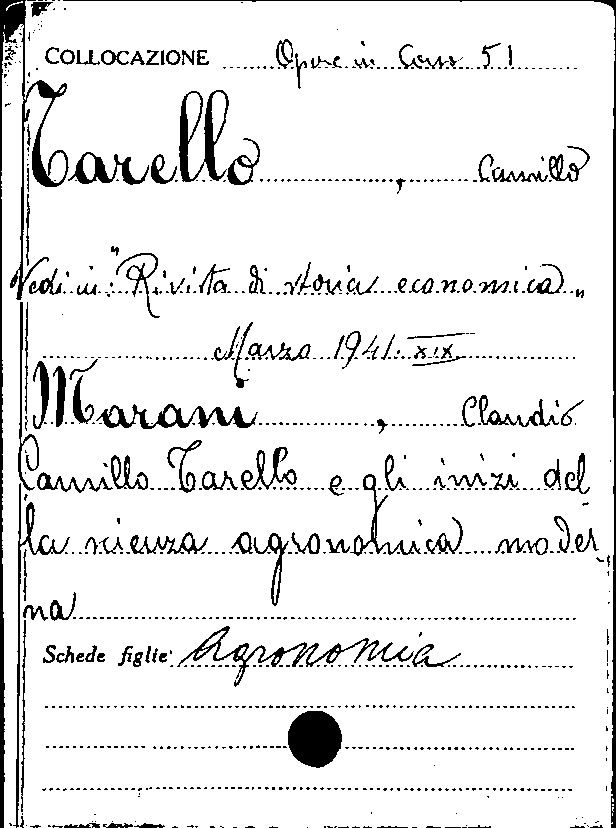 COLLOCAZIONE Opere in Corso 51
Tarello, Camillo
Vedi in: "Rivista di storia economica„
Marzo 1941. XIX
Marani, Claudio
Camillo Tarello e gli inizi del
la scienza agronomica moder
na
Schede figlie: Agronomia